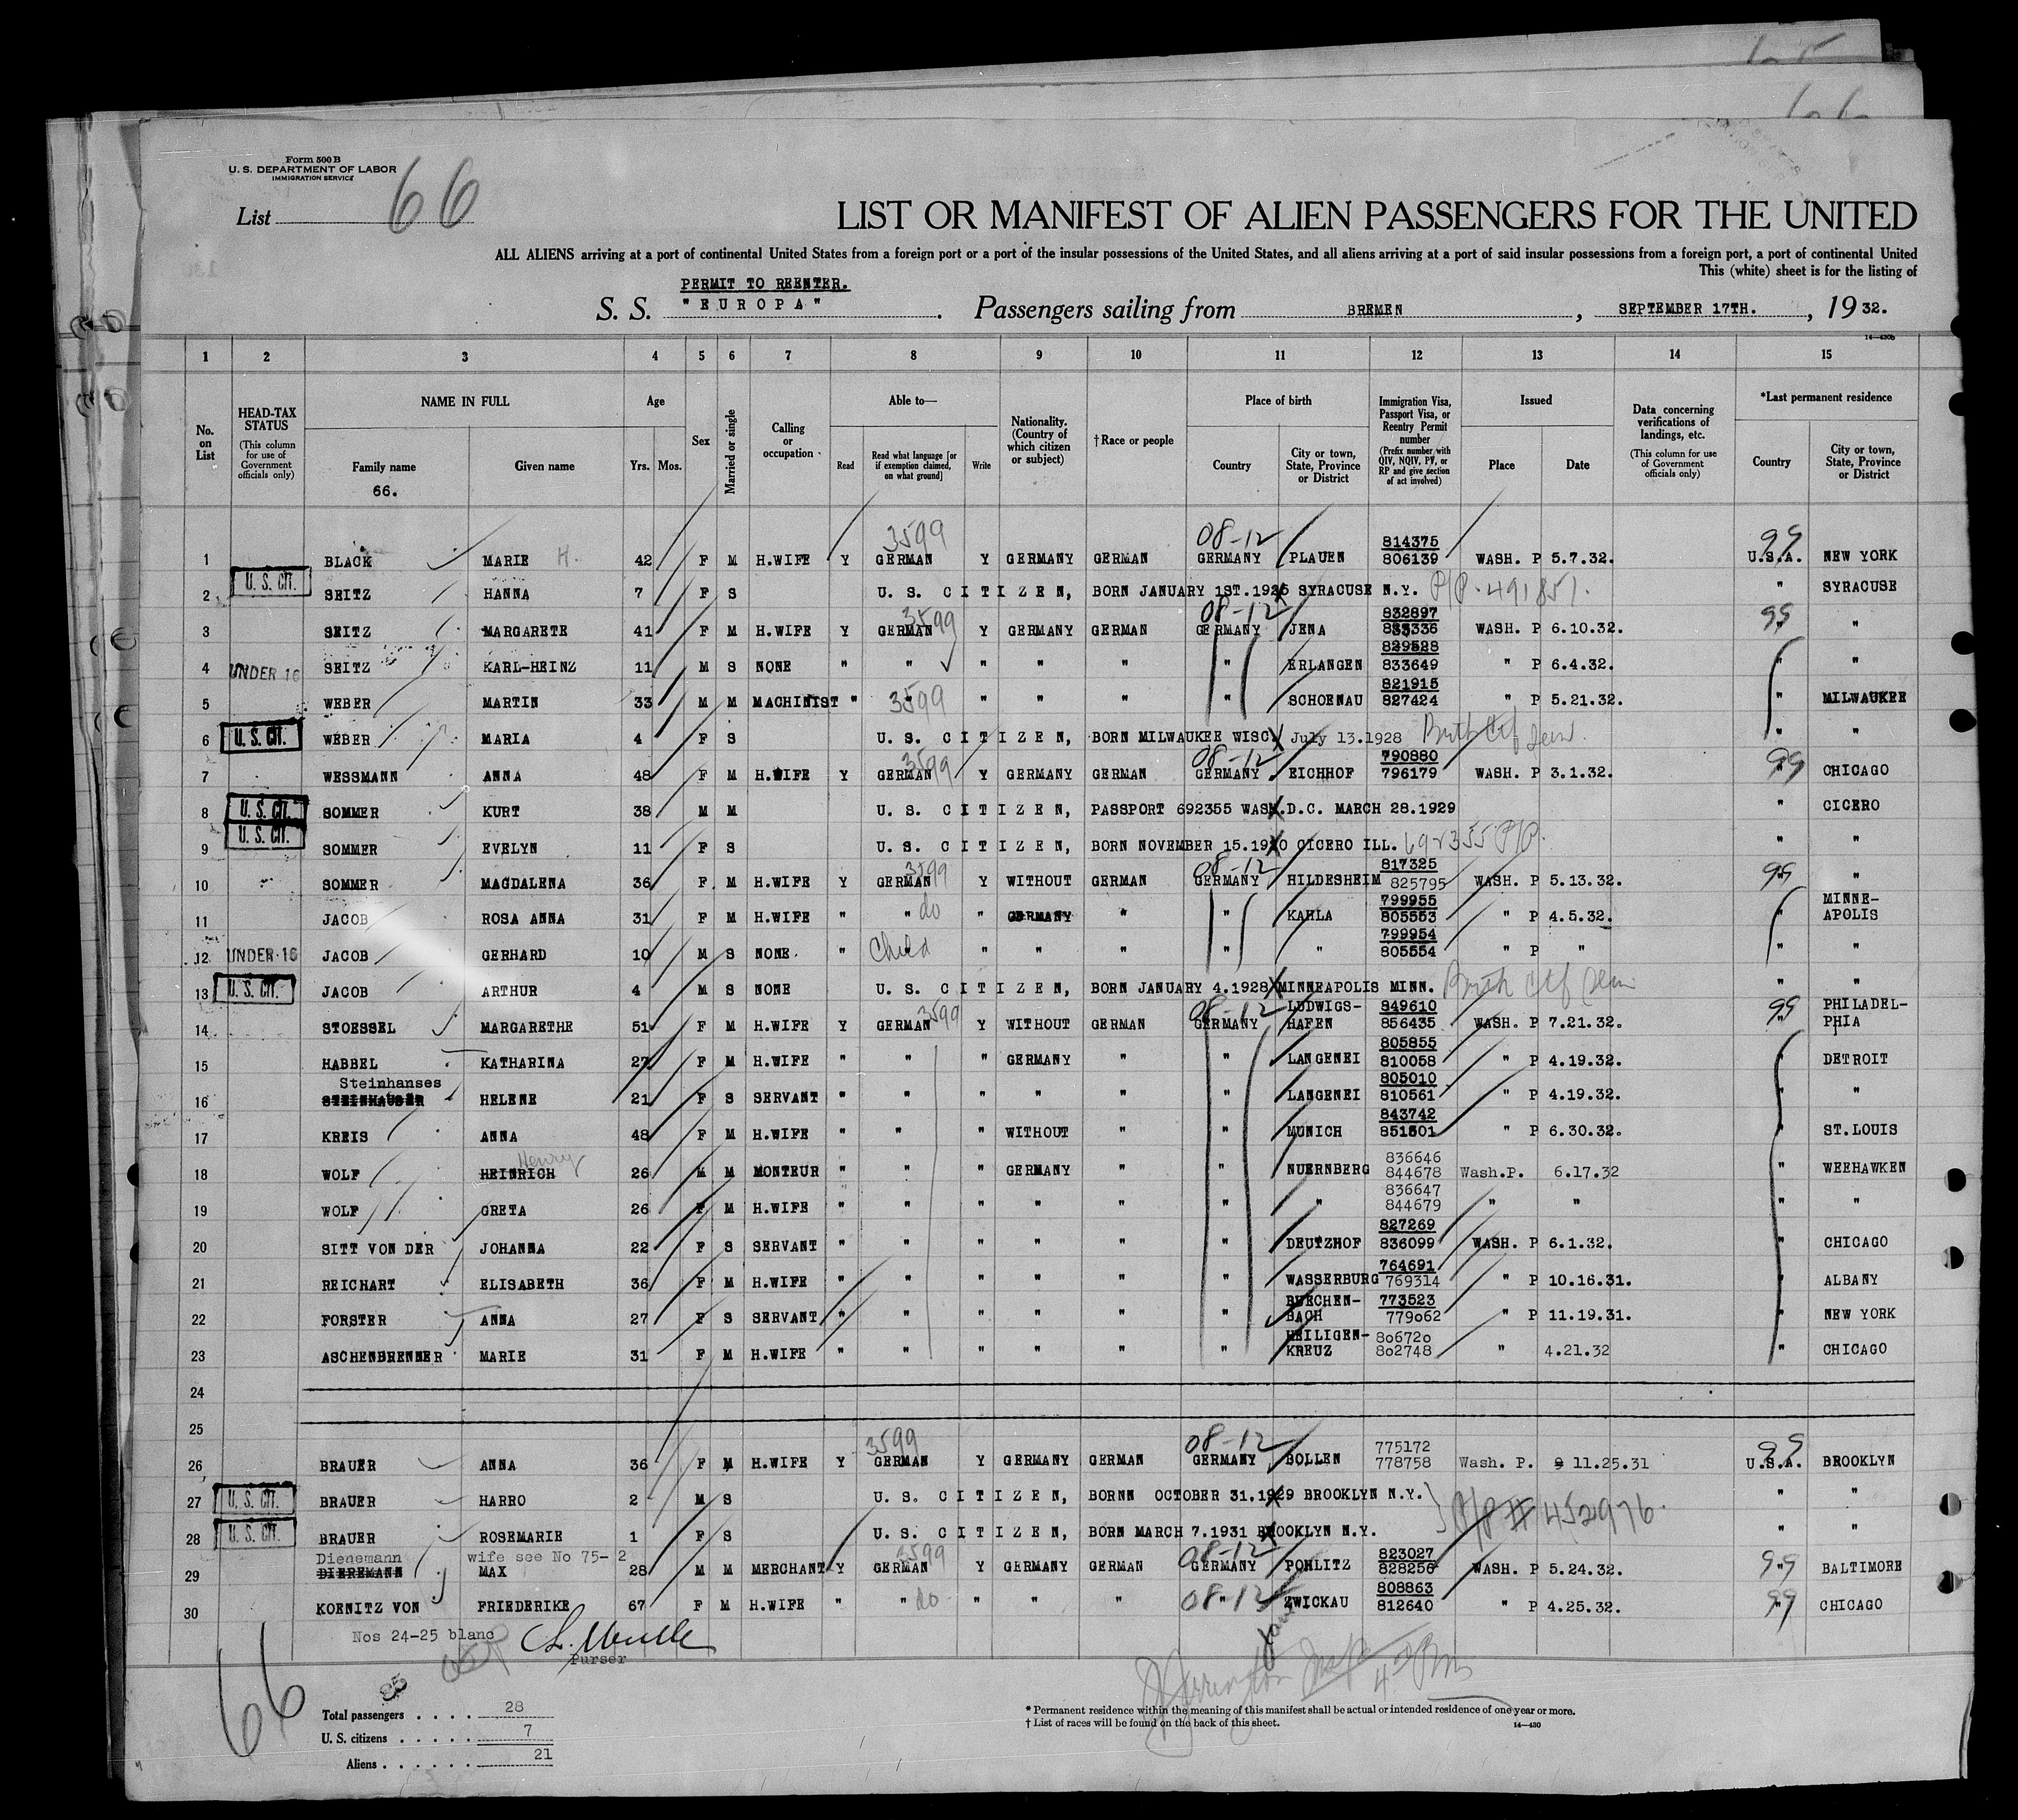 Form 500 B
U. S. DEPARTMENT OF LABOR
IMMIGRATION SERVICE
List 66
LIST OR MANIFEST OF ALIEN PASSENGERS FOR THE UNITED
ALL ALIENS arriving at a port of continental United States from a foreign port or a port of the insular possessions of the United States, and all aliens arriving at a port of said insular possessions from a foreign port, a port of continental United
This (white) sheet is for the listing of
PERMIT TO REENTER.
S. S. "EUROPA". Passengers sailing from BREMEN, SEPTEMBER 17TH., 1932.
14—430b
1 2 3 4 5 6 7 8 9 10 11 12 13 14 15
No. on List
HEAD-TAX STATUS (This column for use of Government officials only)
NAME IN FULL
Family name
66.
Given name
Age
Yrs. Mos.
Sex
Married or single
Calling or occupation
Able to—
Read
Read what language [or if exemption claimed, on what ground]
Write
Nationality. (Country of which citizen or subject)
†Race or people
Place of birth
Country
City or town, State, Province or District
Immigration Visa, Passport Visa, or Reentry Permit number (Prefix number with QIV, NQIV, PV, or RP and give section of act involved)
Issued
Place
Date
Data concerning verifications of landings, etc. (This column for use of Government officials only)
*Last permanent residence
Country
City or town, State, Province or District
3599 08-12 814375 99
1 BLACK MARIE H. 42 F M H.WIFE Y GERMAN Y GERMANY GERMAN GERMANY PLAUEN 806139 WASH. P 5.7.32. U.S.A. NEW YORK
2 U. S. CIT. SEITZ HANNA 7 F S U. S. CITIZEN, BORN JANUARY 1ST.1925 SYRACUSE N.Y. P/P. 491851. " SYRACUSE
3599 08-12 832897 99
3 SEITZ MARGARETE 41 F M H.WIFE Y GERMAN Y GERMANY GERMAN GERMANY JENA WASH. P 6.10.32. " "
829528
4 UNDER 16 SEITZ KARL-HEINZ 11 M S NONE " " " " " " ERLANGEN 833649 " P 6.4.32. " "
3599 821915
5 WEBER MARTIN 33 M M MACHINIST " " " " " " SCHOENAU 827424 " P 5.21.32. " MILWAUKEE
6 U. S. CIT. WEBER MARIA 4 F S U. S. CITIZEN, BORN MILWAUKEE WISC. July 13.1928 Birth Ctf " "
3599 08-12 790880 99
7 WESSMANN ANNA 48 F M H.WIFE Y GERMAN Y GERMANY GERMAN GERMANY EICHHOF 796179 WASH. P 3.1.32. " CHICAGO
8 U. S. CIT. SOMMER KURT 38 M M U. S. CITIZEN, PASSPORT 692355 WASH.D.C. MARCH 28.1929 " CICERO
9 U. S. CIT. SOMMER EVELYN 11 F S U. S. CITIZEN, BORN NOVEMBER 15.1920 CICERO ILL. 692355 P/P. " "
3599 08-12 817325 99
10 SOMMER MAGDALENA 36 F M H.WIFE Y GERMAN Y WITHOUT GERMAN GERMANY HILDESHEIM 825795 WASH. P 5.13.32. " "
799955 MINNE-
11 JACOB ROSA ANNA 31 F M H.WIFE " " do " GERMANY " " KAHLA 805553 " P 4.5.32. " APOLIS
799954
12 UNDER 16 JACOB GERHARD 10 M S NONE. " Child " " " " " 805554 " P " " "
13 U. S. CIT. JACOB ARTHUR 4 M S NONE U. S. CITIZEN, BORN JANUARY 4.1928 MINNEAPOLIS MINN. Birth Ctf " "
3599 08-12 LUDWIGS- 849610 99 PHILADEL-
14 STOESSEL MARGARETHE 51 F M H.WIFE Y GERMAN Y WITHOUT GERMAN GERMANY HAFEN 856435 WASH. P 7.21.32. " PHIA
805855
15 HABBEL KATHARINA 27 F M H.WIFE " " " GERMANY " " LANGENEI 810058 " P 4.19.32. " DETROIT
Steinhanses 805010
16 STEINHAUSER HELENE 21 F S SERVANT " " " " " " LANGENEI 810561 " P 4.19.32. " "
843742
17 KREIS ANNA 48 F M H.WIFE " " " WITHOUT " " MUNICH 851501 " P 6.30.32. " ST.LOUIS
Henry 836646
18 WOLF HEINRICH 26 M M MONTEUR " " " GERMANY " " NUERNBERG 844678 Wash.P. 6.17.32 " WEEHAWKEN
836647
19 WOLF GRETA 26 F M H.WIFE " " " " " " " 844679 " " " "
827269
20 SITT VON DER JOHANNA 22 F S SERVANT " " " " " " DEUTZHOF 836099 WASH. P 6.1.32. " CHICAGO
764691
21 REICHART ELISABETH 36 F M H.WIFE " " " " " " WASSERBURG 769314 " P 10.16.31. " ALBANY
BUECHEN- 773523
22 FORSTER ANNA 27 F S SERVANT " " " " " " BACH 779062 " P 11.19.31. " NEW YORK
HEILIGEN- 806720
23 ASCHENBRENNER MARIE 31 F M H.WIFE " " " " " " KREUZ 802748 " 4.21.32 " CHICAGO
24
25
3599 08-12 775172 99
26 BRAUER ANNA 36 F M H.WIFE Y GERMAN Y GERMANY GERMAN GERMANY BOLLEN 778758 Wash. P. 9 11.25.31 U.S.A. BROOKLYN
27 U. S. CIT. BRAUER HARRO 2 M S U. S. CITIZEN, BORNN OCTOBER 31.1929 BROOKLYN N.Y. " "
P/P # 452976.
28 U. S. CIT. BRAUER ROSEMARIE 1 F S U. S. CITIZEN, BORN MARCH 7.1931 BROOKLYN N.Y. " "
Dienemann wife see No 75-2 3599 08-12 823027 99
29 DIEREMANN MAX 28 M M MERCHANT Y GERMAN Y GERMANY GERMAN GERMANY POHLITZ 828256 WASH. P 5.24.32. " BALTIMORE
808863
30 KOENITZ VON FRIEDERIKE 67 F M H.WIFE " " do " " " 08-12 ZWICKAU 812640 " P 4.25.32. 99 CHICAGO
Nos 24-25 blanc
Purser
66
Total passengers 28
U. S. citizens 7
Aliens 21
* Permanent residence within the meaning of this manifest shall be actual or intended residence of one year or more.
† List of races will be found on the back of this sheet.
14—430